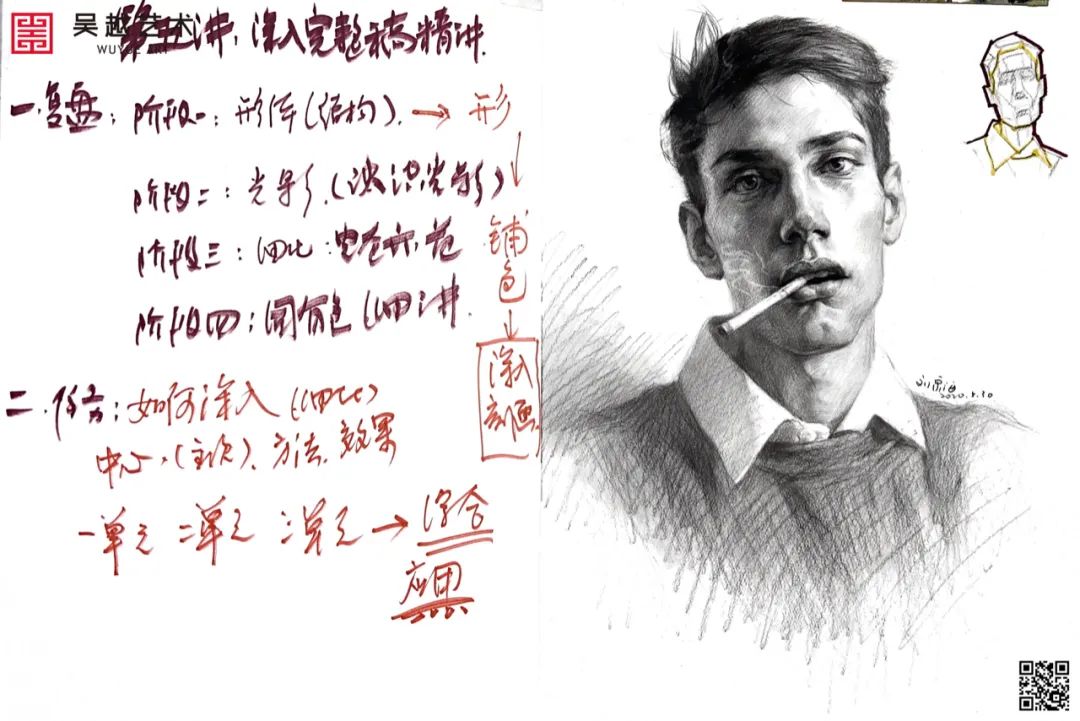 吴越艺术
WUYUE ART
第五讲：深入完整示高精讲.
一.复盘：阶段一：形体(结构). → 形
阶段二：光影.(认识光影)
阶段三：细化：
阶段四：固有色 细讲.
铺色
深入刻画
二.任务：如何深入(细化)
中心.(主次).方法.效果
一单元 二单元 三单元 → 综合
应用
2020.8.30